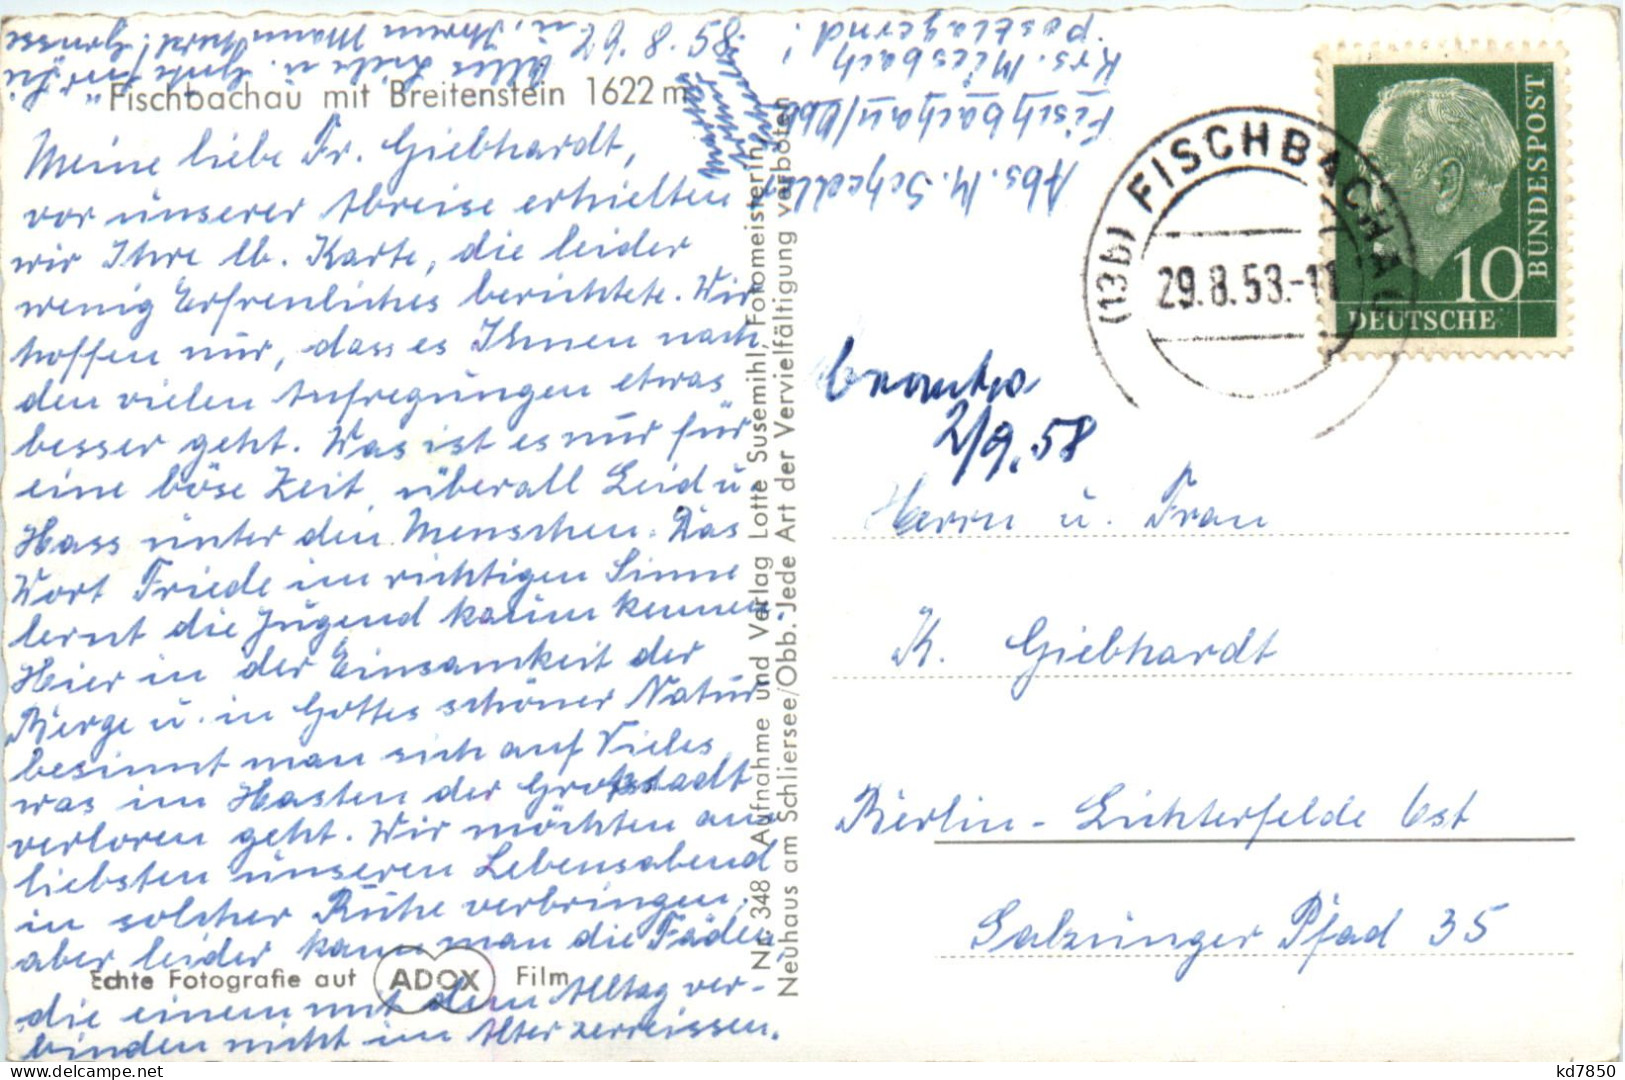 Fischbachau mit Breitenstein 1622 m
Meine liebe Fr. Giebhardt,
vor unserer Abreise erhielten
wir Ihre lb. Karte, die leider
wenig Erfreuliches berichtete. Wir
hoffen nur, dass es Ihnen nach
den vielen Aufregungen etwas
besser geht. Was ist es nur für
eine böse Zeit, überall Leid u.
Hass unter den Menschen. Das
Wort Friede im richtigen Sinne
lernt die Jugend kaum kennen.
Hier in der Einsamkeit der
Berge u. in Gottes schöner Natur
besinnt man sich auf Vieles
was im Hasten der Großstadt
verloren geht. Wir möchten am
liebsten unseren Lebensabend
in solcher Ruhe verbringen,
aber leider kann man die Fäden,
die einem mit dem Alltag ver-
binden nicht im Alter zerreissen.
Alles Liebe u. Gute für Sie
u. Ihren Mann
Echte Fotografie auf ADOX Film
Nr. 348 Aufnahme und Verlag Lotte Susemihl, Fotomeisterin,
Neuhaus am Schliersee/Obb. Jede Art der Vervielfältigung verboten
Abs. M. Schedler
Fischbachau/Obb
Krs. Miesbach
postlagernd!
(13b) FISCHBACHAU
29.8.58.-11
10
DEUTSCHE
BUNDESPOST
2/9.58
Herrn u. Frau
K. Giebhardt
Berlin-Lichterfelde Ost
Salzunger Pfad 35
kd7850